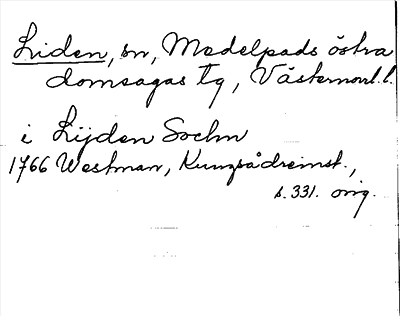 Liden, sn, Medelpads östra
domsagas tg, Västernorrl. l.
i Lijden Sochn
1766 Westman, Kungsådreinst.,
s. 331. orig.